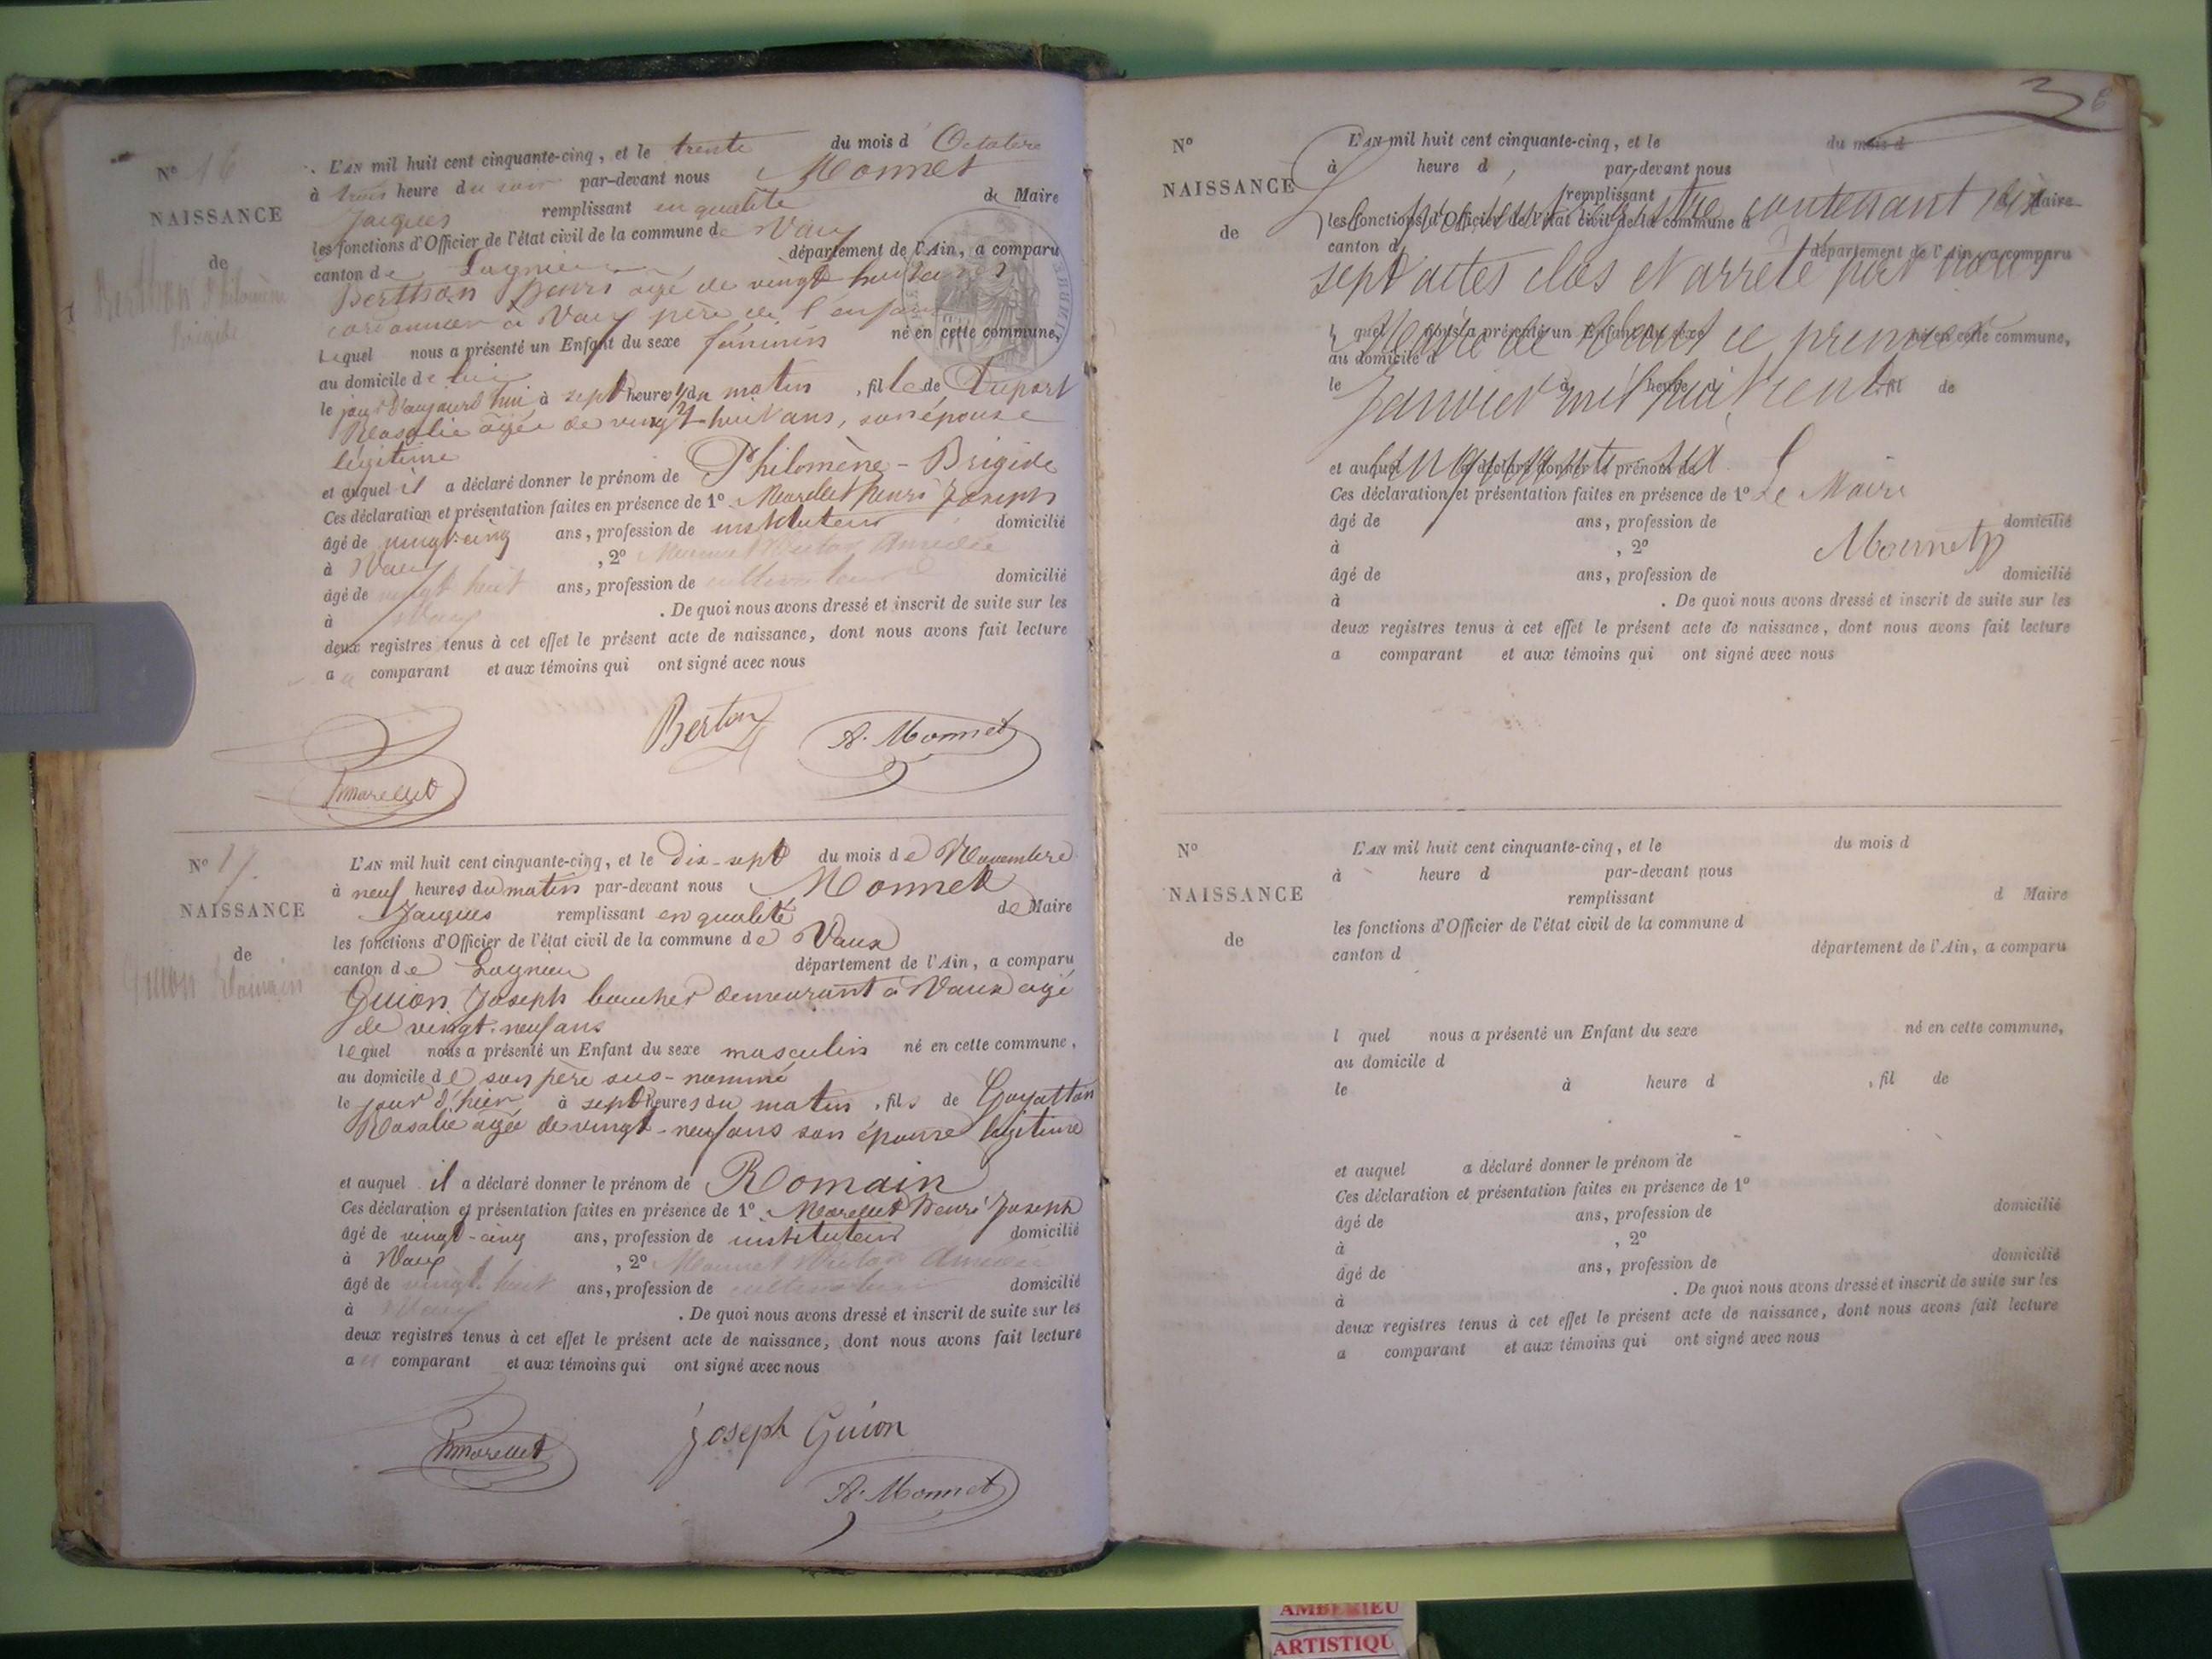 N° 16
NAISSANCE
de
Berthon Philomène
Brigide
L'AN mil huit cent cinquante-cinq, et le trente du mois d'Octobre
à trois heure du soir par-devant nous Monnet
Jacques remplissant en qualité de Maire
les fonctions d'Officier de l'état civil de la commune de Vaux
canton de Lagnieu département de l'Ain, a comparu
Berthon Henri agé de vingt huit ans
cordonnier à Vaux père de l'enfant
Lequel nous a présenté un Enfant du sexe féminin né en cette commune,
au domicile de lui
le jour d'aujourd'hui à sept heures 1/2 du matin, fille de Duport
Rosalie agée de vingt-huit ans, son épouse
légitime
et auquel il a déclaré donner le prénom de Philomène-Brigide
Ces déclaration et présentation faites en présence de 1° Morellet Henri Joseph
âgé de vingt-cinq ans, profession de instituteur domicilié
à Vaux, 2° Monnet Victor Amédée
âgé de vingt huit ans, profession de cultivateur domicilié
à Vaux. De quoi nous avons dressé et inscrit de suite sur les
deux registres tenus à cet effet le présent acte de naissance, dont nous avons fait lecture
au comparant et aux témoins qui ont signé avec nous
Berton
A. Monnet
Morellet
N° 17.
NAISSANCE
de
Guion Romain
L'AN mil huit cent cinquante-cinq, et le dix-sept du mois de Novembre
à neuf heures du matin par-devant nous Monnet
Jacques remplissant en qualité de Maire
les fonctions d'Officier de l'état civil de la commune de Vaux
canton de Lagnieu département de l'Ain, a comparu
Guion Joseph boucher demeurant à Vaux agé
de vingt-neuf ans
lequel nous a présenté un Enfant du sexe masculin né en cette commune,
au domicile de son père sus-nommé
le jour d'hier à sept heures du matin, fils de Goyatton
Rosalie agée de vingt-neuf ans son épouse légitime
et auquel il a déclaré donner le prénom de Romain
Ces déclaration et présentation faites en présence de 1° Morellet Henri Joseph
âgé de vingt-cinq ans, profession de instituteur domicilié
à Vaux, 2° Monnet Victor Amédée
âgé de vingt-huit ans, profession de cultivateur domicilié
à Vaux. De quoi nous avons dressé et inscrit de suite sur les
deux registres tenus à cet effet le présent acte de naissance, dont nous avons fait lecture
au comparant et aux témoins qui ont signé avec nous
Morellet
Joseph Guion
A. Monnet
N°
NAISSANCE
de
L'AN mil huit cent cinquante-cinq, et le du mois d
à heure d par-devant nous
remplissant d Maire
Le présent registre contenant dix
les fonctions d'Officier de l'état civil de la commune d
canton d département de l'Ain, a comparu
sept actes clos et arrêté par nous
l quel nous a présenté un Enfant du sexe né en cette commune,
Maire de Vaux ce premier
au domicile d
le à heure d, fil de
Janvier mil huit cent
cinquante-six.
et auquel a déclaré donner le prénom de
Le Maire
Ces déclaration et présentation faites en présence de 1°
âgé de ans, profession de domicilié
à , 2°
Monnet
âgé de ans, profession de domicilié
à . De quoi nous avons dressé et inscrit de suite sur les
deux registres tenus à cet effet le présent acte de naissance, dont nous avons fait lecture
a comparant et aux témoins qui ont signé avec nous
N°
NAISSANCE
de
L'AN mil huit cent cinquante-cinq, et le du mois d
à heure d par-devant nous
remplissant d Maire
les fonctions d'Officier de l'état civil de la commune d
canton d département de l'Ain, a comparu
l quel nous a présenté un Enfant du sexe né en cette commune,
au domicile d
le à heure d , fil de
et auquel a déclaré donner le prénom de
Ces déclaration et présentation faites en présence de 1°
âgé de ans, profession de domicilié
à , 2°
âgé de ans, profession de domicilié
à . De quoi nous avons dressé et inscrit de suite sur les
deux registres tenus à cet effet le présent acte de naissance, dont nous avons fait lecture
a comparant et aux témoins qui ont signé avec nous
AMBERIEU
ARTISTIQU